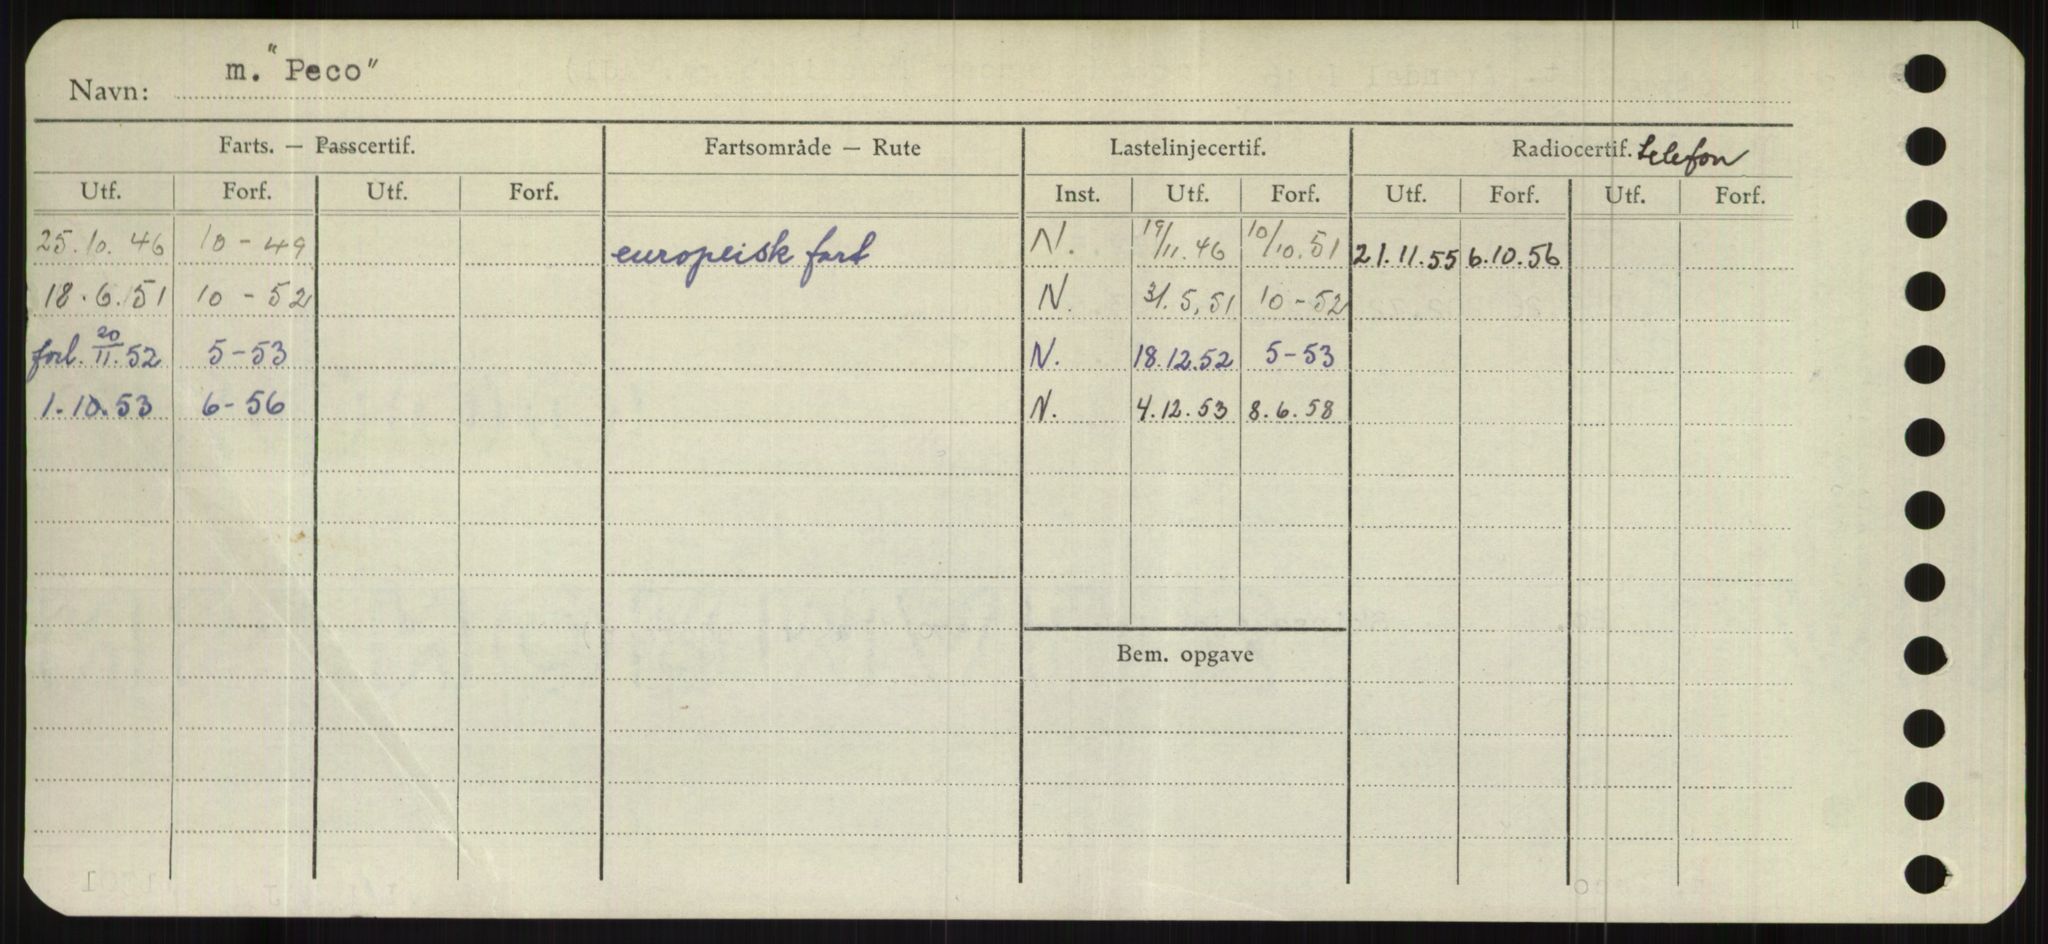 Navn: m. "Peco"
Farts. — Passcertif. Fartsområde — Rute Lastelinjecertif. Radiocertif. telefon
Utf. Forf. Utf. Forf. Inst. Utf. Forf. Utf. Forf. Utf. Forf.
25.10.46 10-49 europeisk fart N. 19/11.46 10/10.51 21.11.55 6.10.56
18.6.51 10-52 N. 31.5.51 10-52
forl. 20/11.52 5-53 N. 18.12.52 5-53
1.10.53 6-56 N. 4.12.53 8.6.58
Bem. opgave